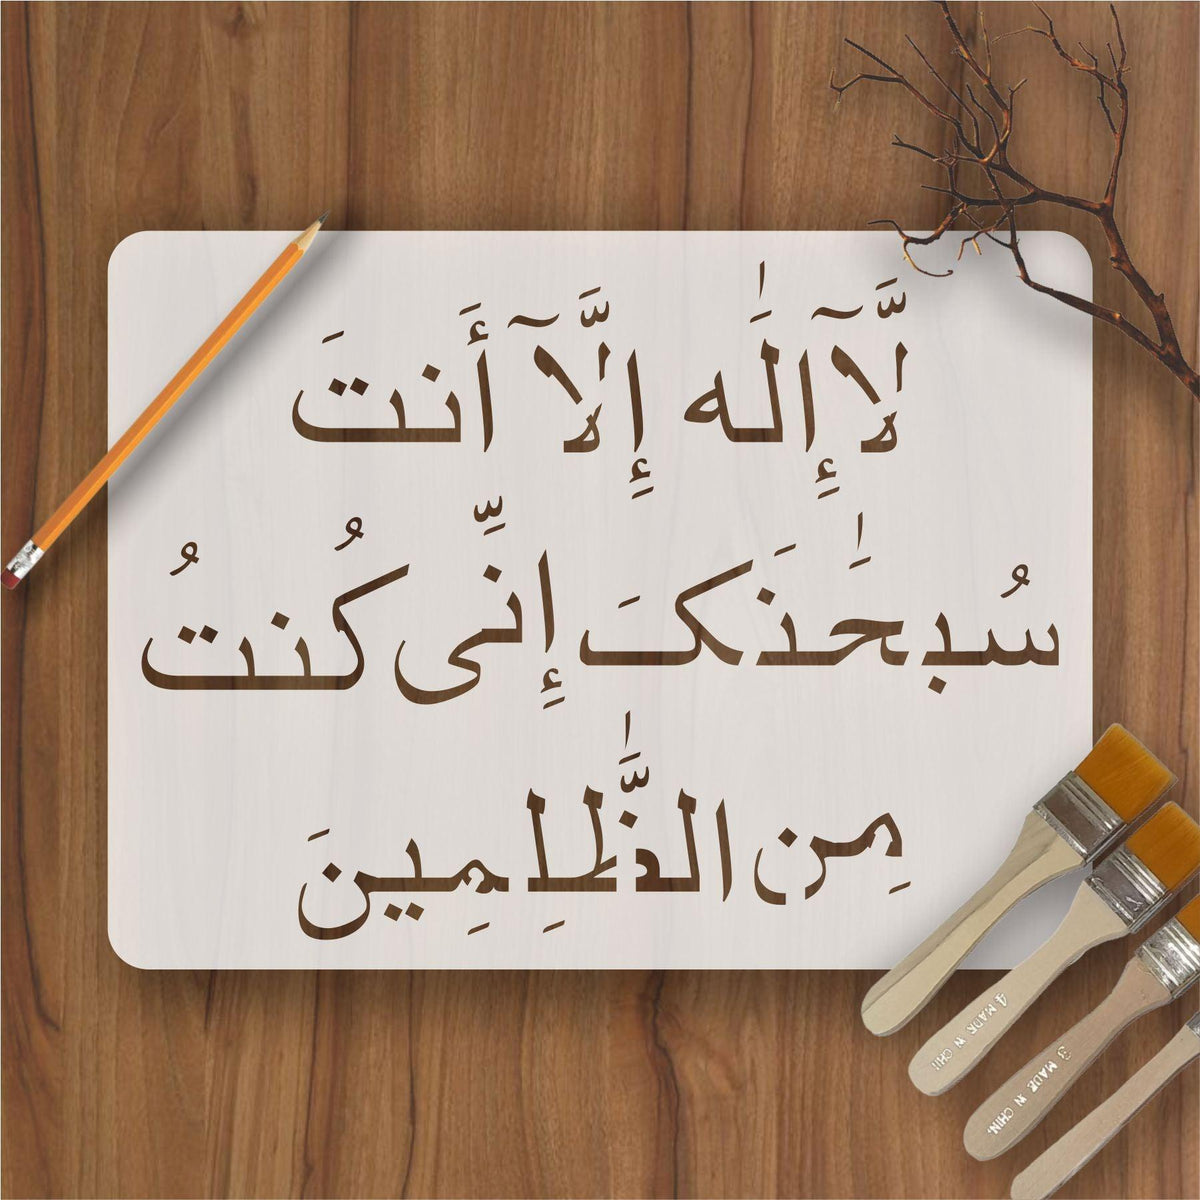 لَّآ إِلَٰه إِلَّآ أَنتَ
سُبحَٰنَکَ إِنِّی کُنتُ
مِن الظَّٰلِمِينَ
4 MADE IN CHI
3 MADE IN CHIN.